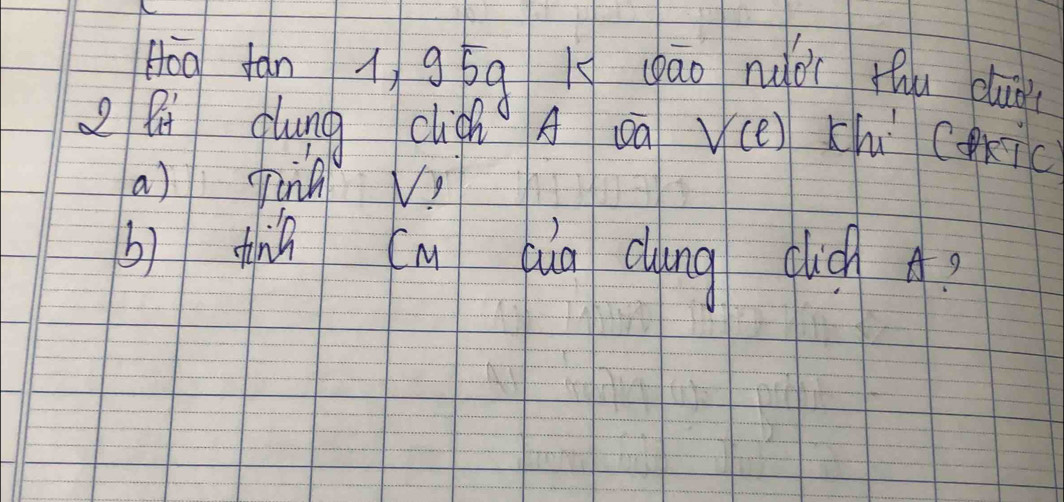 Hòa tan 1,95g K vào nước thu được
2 lít dung dịch A và V(l) khí (ĐKTC)
a) Tính V?
b) tính CM của dung dịch A?